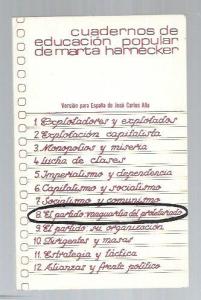 cuadernos de
educación popular
de marta harnecker
Versión para España de José Carlos Alía
1 Explotadores y explotados
2 Explotación capitalista
3 Monopolios y miseria
4 Lucha de clases
5 Imperialismo y dependencia
6 Capitalismo y socialismo
7 Socialismo y comunismo
8 El partido vanguardia del proletariado
9 El partido su organización
10 Dirigentes y masas
11 Estrategia y táctica
12 Alianzas y frente político